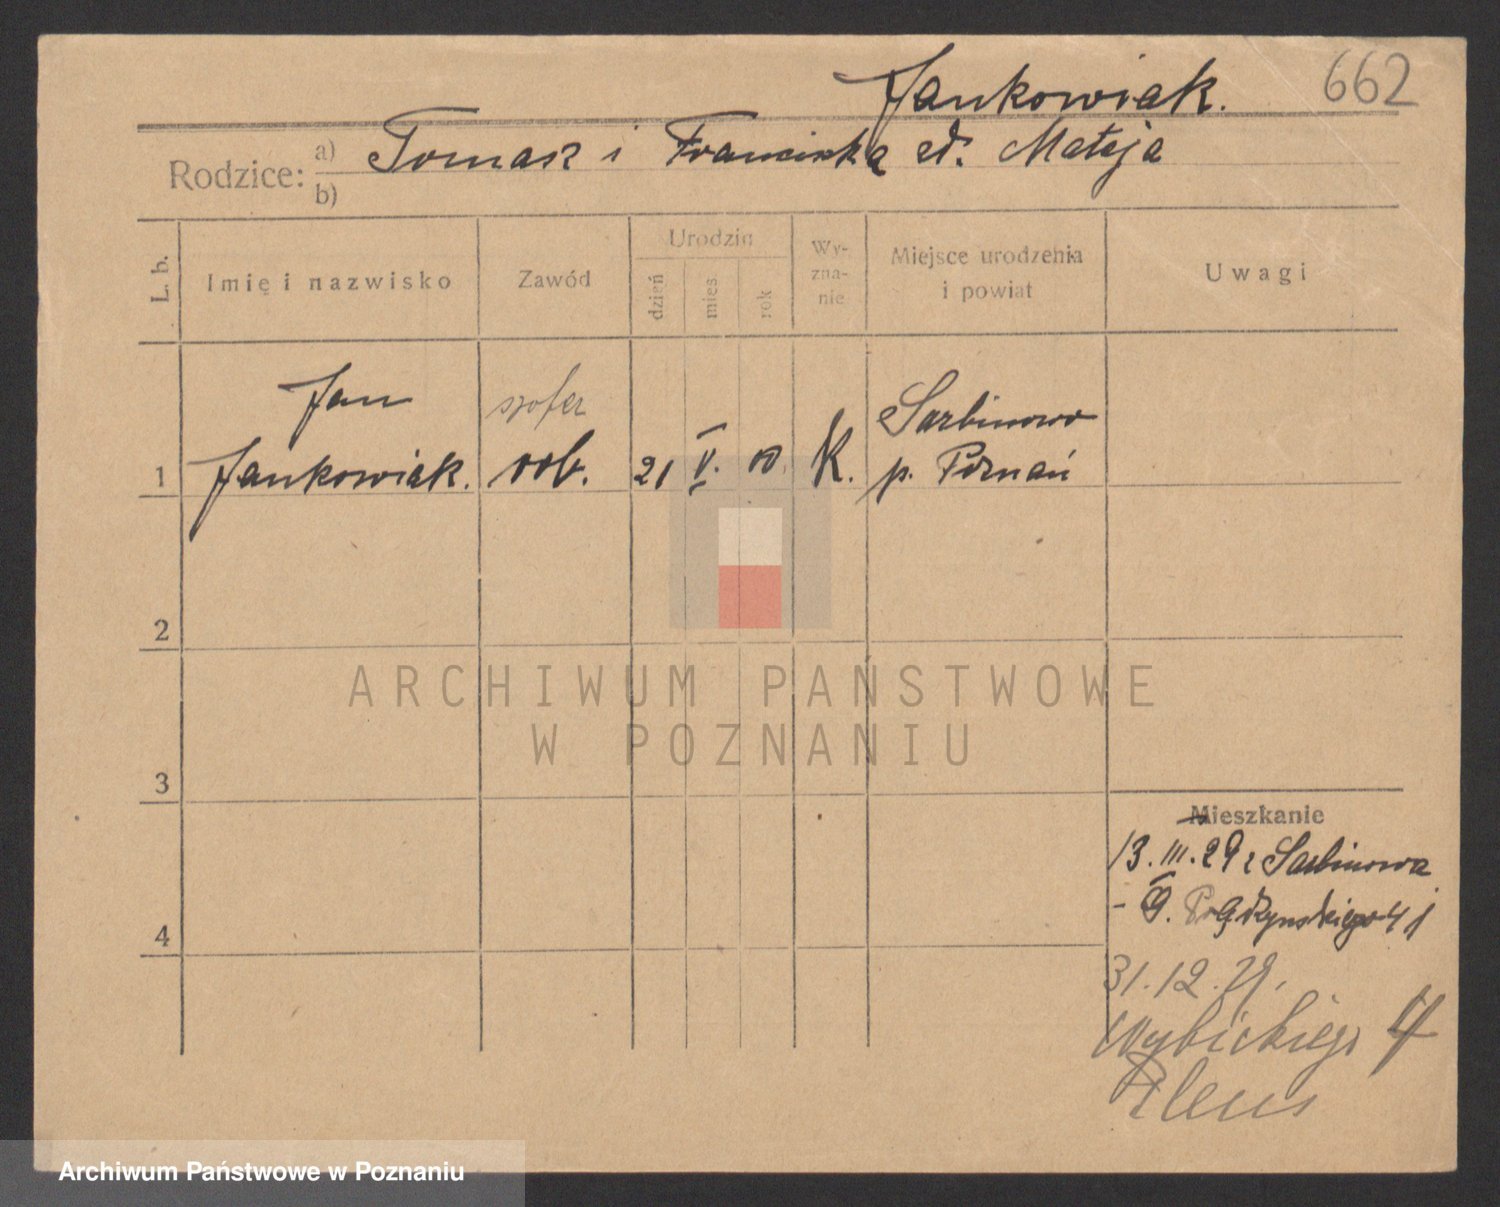 Jankowiak.
662
Rodzice:
a) Tomasz i Franciszka zd. Mateja
b)
L. b.
Imię i nazwisko
Zawód
Urodzin
dzień
mies.
rok
Wy-
zna-
nie
Miejsce urodzenia
i powiat
Uwagi
Jan
szofer
Sarbinowo
1 Jankowiak. rob. 21 V. 10. K. p. Poznań
2
ARCHIWUM PAŃSTWOWE
W POZNANIU
3
Mieszkanie
13.III.29 z Sarbinowa
4
31.12.29.
Wybickiego 4
Archiwum Państwowe w Poznaniu